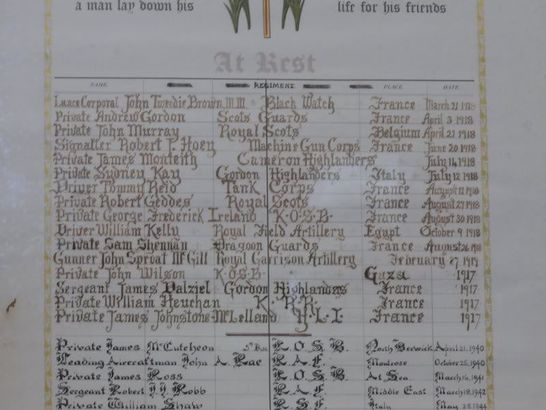 a man lay down his life for his friends
At Rest
NAME. REGIMENT PLACE DATE
Lance Corporal John Tweedie Brown, M.M. Black Watch France March 21 1918
Private Andrew Gordon Scots Guards France April 3 1918
Private John Murray Royal Scots Belgium April 21 1918
Signaller Robert T. Hoey Machine Gun Corps France June 20 1918
Private James Monteith Cameron Highlanders July 14 1918
Private Sydney Kay Gordon Highlanders Italy July 12 1918
Driver Tommy Reid Tank Corps France August 11 1918
Private Robert Geddes Royal Scots France August 27 1918
Private George Frederick Ireland K.O.S.B. France August 30 1918
Driver William Kelly Royal Field Artillery Egypt October 9 1918
Private Sam Shennan Dragoon Guards France August 26 1918
Gunner John Sproat McGill Royal Garrison Artillery February 27 1917
Private John Wilson K.O.S.B. Gaza 1917
Sergeant James Dalziel Gordon Highlandas France 1917
Private William Heuchan K. R. R. France 1917
Private James Johnstone McLelland H. L. I. France 1917
Private James McCutcheon K. O. S. B. North Berwick April 21, 1940
Leading Aircraftman John A. Rae R. A. F. Montrose October 25, 1940
Private James Ross K. O. S. B. At Sea March 14, 1941
Sergeant Robert J.J. Robb R. A. F. Middle East March 18, 1942
Private William Shaw R. S. F. Italy May 28 1944